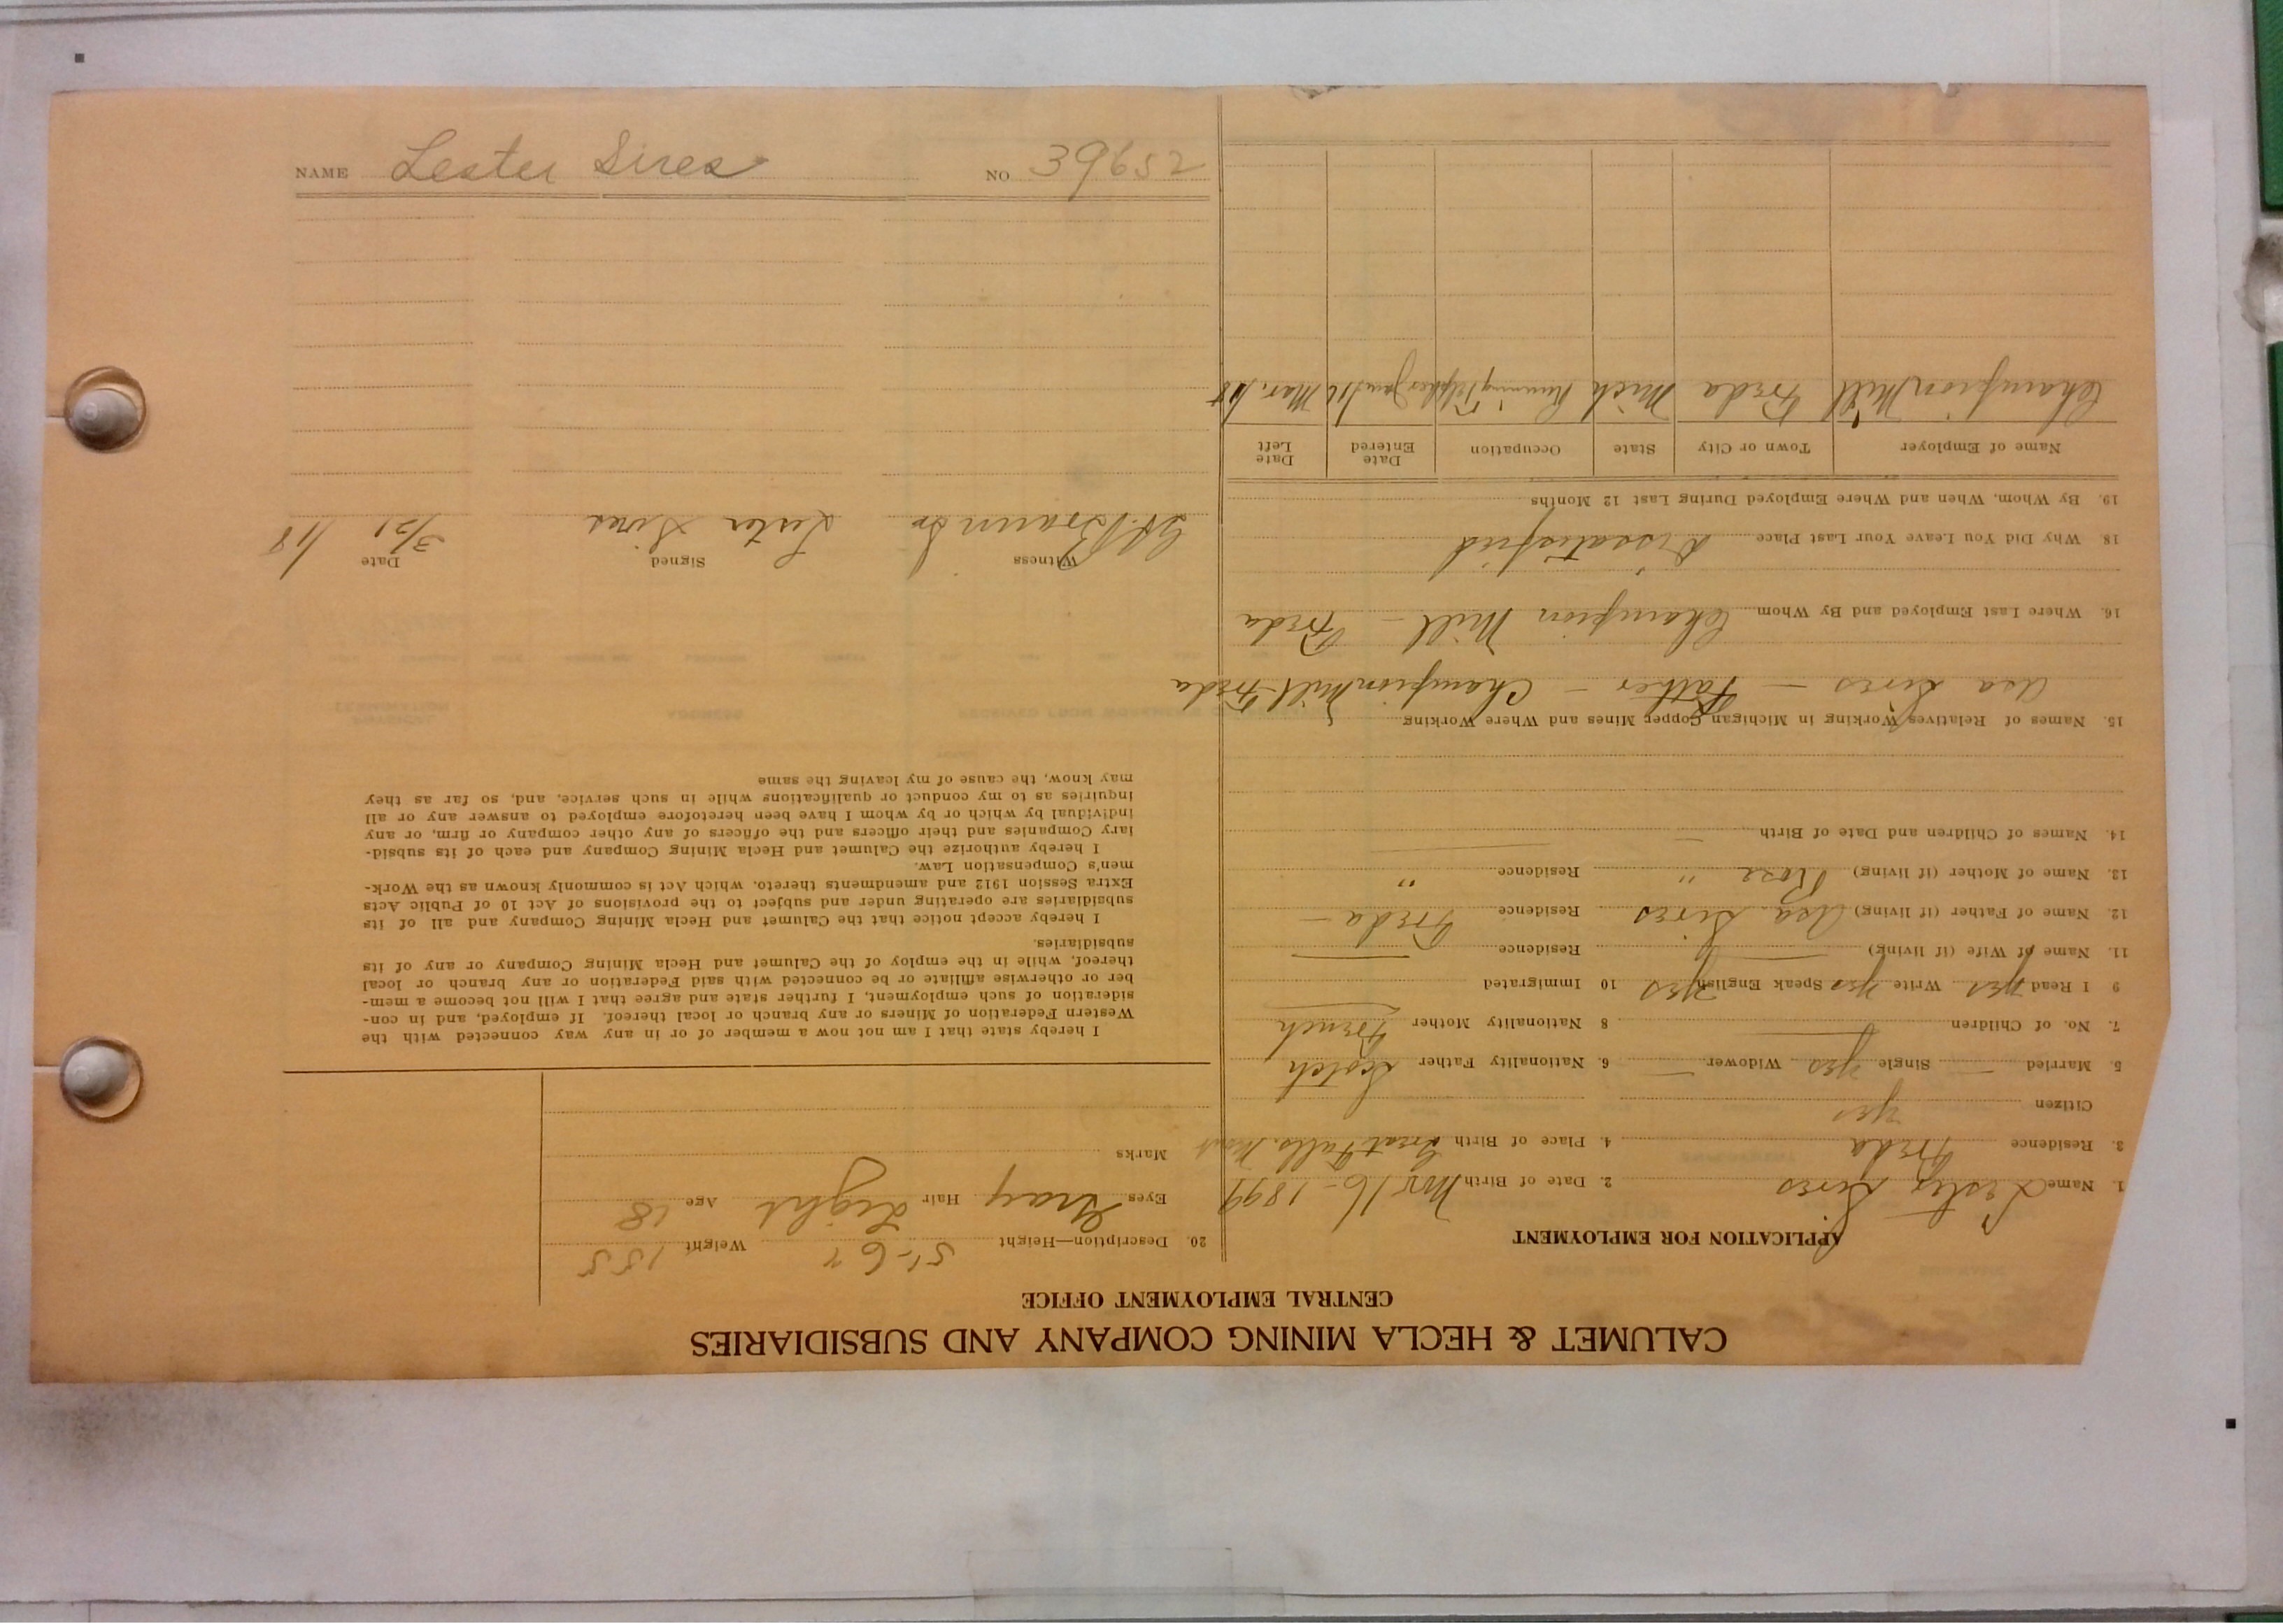 CALUMET & HECLA MINING COMPANY AND SUBSIDIARIES
CENTRAL EMPLOYMENT OFFICE
APPLICATION FOR EMPLOYMENT
1. Name Lester Sires 2. Date of Birth Nov 16 - 1899
3. Residence Freda 4. Place of Birth Great Falls, Mont
Citizen yes
5. Married — Single yes Widower — 6. Nationality Father Scotch
7. No. of Children — 8 Nationality Mother French
9 I Read yes Write yes Speak English yes 10 Immigrated
11. Name of Wife (if living) — Residence —
12. Name of Father (if living) Asa Sires Residence Freda -
13. Name of Mother (if living) Rose " Residence "
14. Names of Children and Date of Birth —
15. Names of Relatives Working in Michigan Copper Mines and Where Working
Asa Sires — Father — Champion Mill - Freda
16. Where Last Employed and By Whom Champion Mill - Freda
18. Why Did You Leave Your Last Place Dissatisfied
19. By Whom, When and Where Employed During Last 12 Months
Name of Employer Town or City State Occupation Date Entered Date Left
Champion Mill Freda Mich Running Jan/16 Mar/18
20. Description—Height 5'-6" Weight 155
Eyes Gray Hair Light Age 18
Marks
I hereby state that I am not now a member of or in any way connected with the
Western Federation of Miners or any branch or local thereof. If employed, and in con-
sideration of such employment, I further state and agree that I will not become a mem-
ber or otherwise affiliate or be connected with said Federation or any branch or local
thereof, while in the employ of the Calumet and Hecla Mining Company or any of its
subsidiaries.
I hereby accept notice that the Calumet and Hecla Mining Company and all of its
subsidiaries are operating under and subject to the provisions of Act 10 of Public Acts
Extra Session 1912 and amendments thereto, which Act is commonly known as the Work-
men's Compensation Law.
I hereby authorize the Calumet and Hecla Mining Company and each of its subsid-
iary Companies and their officers and the officers of any other company or firm, or any
individual by which or by whom I have been heretofore employed to answer any or all
inquiries as to my conduct or qualifications while in such service, and, so far as they
may know, the cause of my leaving the same
Witness Signed Date
Braun Lester Sires 3/21/18
NAME Lester Sires NO 39652